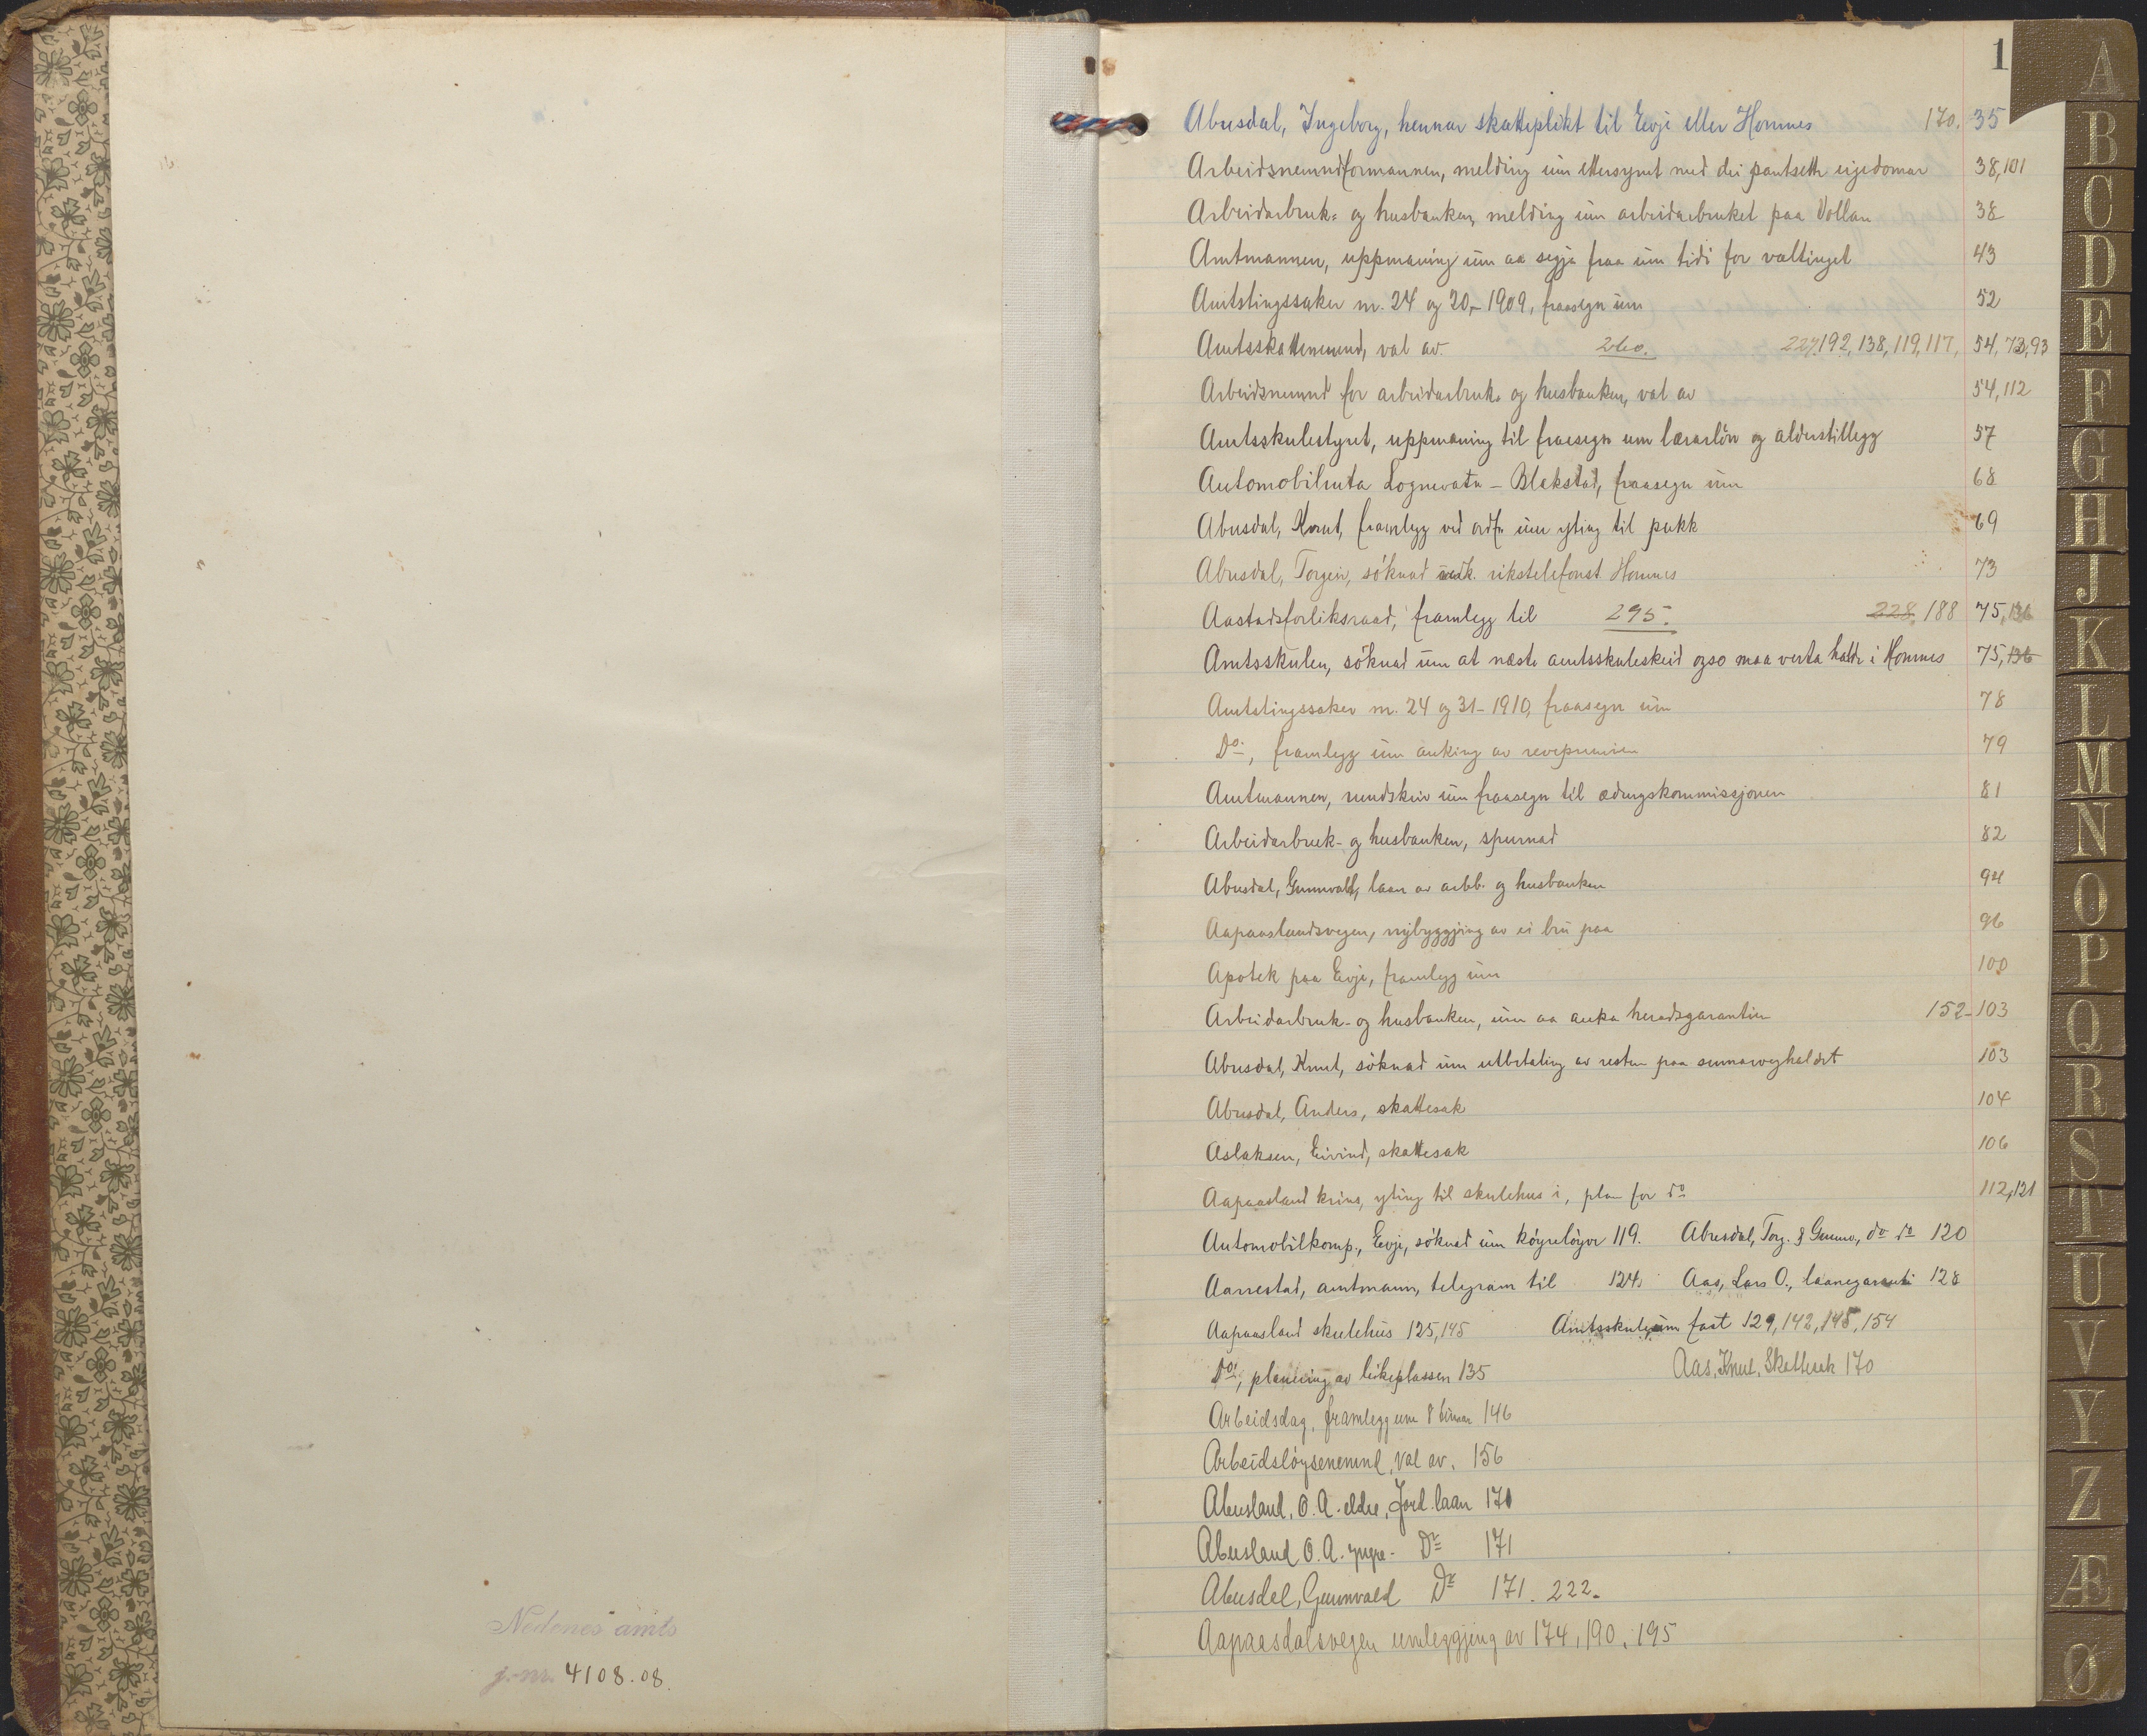 Nedenes amts
j.-nr. 4108.08.
1
Abusdal, Ingeborg, hennar skatteplikt til Evje eller Hornnes 170. 35
Arbeidsnemndformannen, melding um ettersynet med dei pantsette eigedomar 38,101
Arbeidarbruk- og husbanken, melding um arbeidarbruket paa Vollan 38
Amtmannen, uppmaning um aa segja fraa um tidi for valtinget 43
Amtstingssaker nr. 24 og 20,- 1909, fraasegn um 52
Amtsskattenemnd, val av. 260. 227,192,138,119,117, 54,73,93
Arbeidsnemnd for arbeidarbruk- og husbanken, val av 54,112
Amtsskulestyret, uppmaning til fraasegn um lærarløn og alderstillegg 57
Automobilruta Lognevatn - Blakstad, fraasegn um 68
Abusdal, Knut, framlegg ved ordf. um yting til pukk 69
Abusdal, Torgeir, søknad vedk. rikstelefonst. Hornnes 73
Aastadsforliksraad, framlegg til 295. 228, 188 75,136
Amtsskulen, søknad um at næste amtsskuleskeid ogso maa verta halde i Hornnes 75,136
Amtstingssaker nr. 24 og 31-1910, fraasegn um 78
Do, framlegg um auking av revepremien 79
Amtmannen, rundskriv um fraasegn til ædrugskommissjonen 81
Arbeidarbruk- og husbanken, spurnad 82
Abusdal, Gunnvald, laan av arbb. og husbanken 94
Aapaaslandsvegen, nybyggjing av ei bru paa 96
Apotek paa Evje, framlegg um 100
Arbeidarbruk- og husbanken, um aa auka heradsgarantien 152-103
Abusdal, Knut, søknad um utbetaling av resten paa sumarveghaldet 103
Abusdal, Anders, skattesak 104
Aslaksen, Eivind, skattesak 106
Aapaasland krins, yting til skulehus i, plan for do 112,121
Automobilkomp., Evje, søknad um køyreløyve 119. Abusdal, Torg. & Gunnv., do do 120
Aarrestad, amtmann, telegram til 124. Aas, Lars O., laanegaranti 128
Aapaasland skulehus 125,145 Amtsskule, um fast 129,142,145,154
Do, planering av leikeplassen 135 Aas, Knut, Skattesak 170
Arbeidsdag, framlegg um 8 timar 146
Arbeidsløysenemnd, val av. 156
Abusland, O. A. eldre, Jord laan 171
Abusland O. A. yngre - Do 171
Abusdal, Gunnvald Do 171. 222.
Aapaasdalsvegen umleggjing av 174, 190, 195
A
B
C
D
E
F
G
H
J
K
L
M
N
O
P
Q
R
S
T
U
V
Y
Z
Æ
Ø